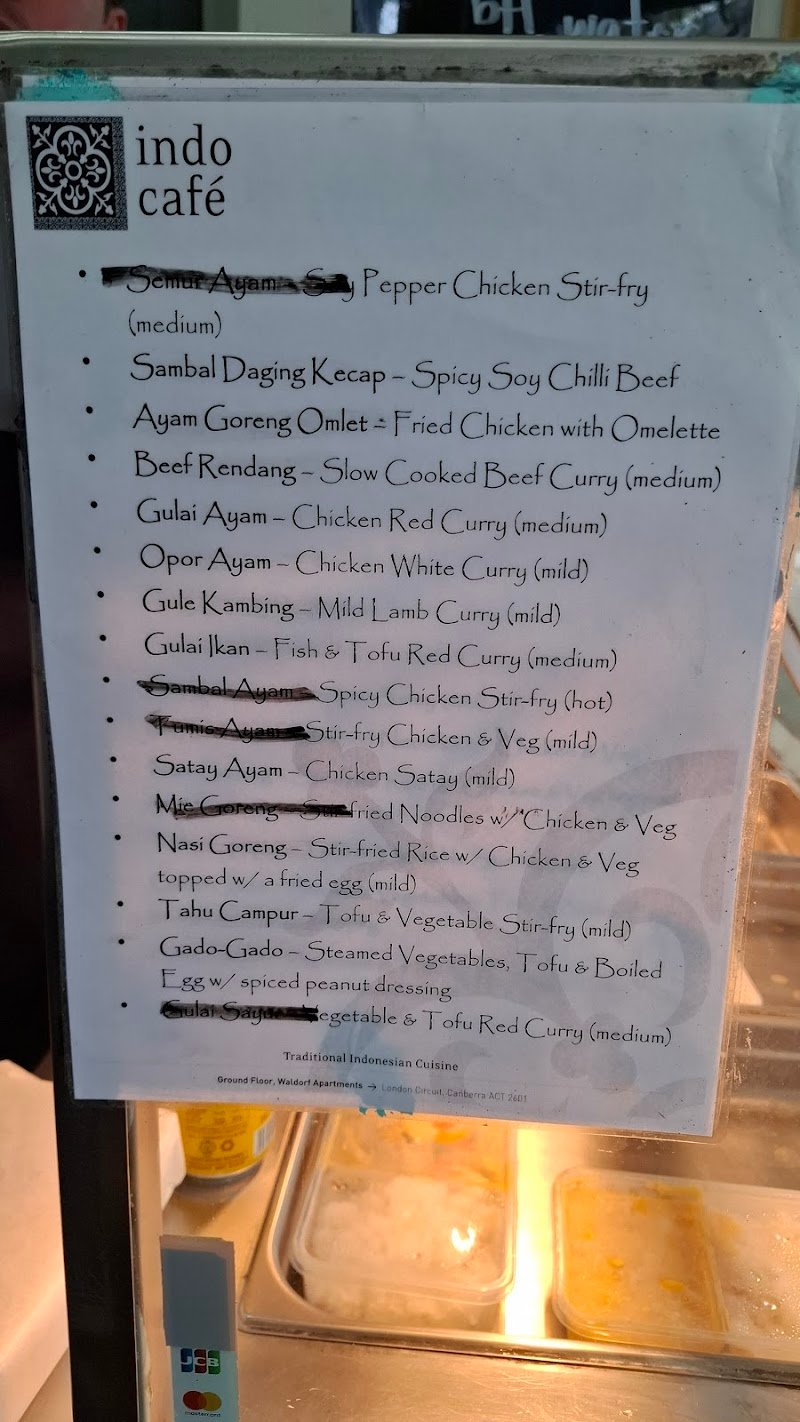 indo
café
• Semur Ayam - Soy Pepper Chicken Stir-fry
(medium)
• Sambal Daging Kecap – Spicy Soy Chilli Beef
• Ayam Goreng Omlet – Fried Chicken with Omelette
• Beef Rendang – Slow Cooked Beef Curry (medium)
• Gulai Ayam – Chicken Red Curry (medium)
• Opor Ayam – Chicken White Curry (mild)
• Gule Kambing – Mild Lamb Curry (mild)
• Gulai Ikan – Fish & Tofu Red Curry (medium)
• Sambal Ayam – Spicy Chicken Stir-fry (hot)
• Tumis Ayam – Stir-fry Chicken & Veg (mild)
• Satay Ayam – Chicken Satay (mild)
• Mie Goreng – fried Noodles w/ Chicken & Veg
• Nasi Goreng – Stir-fried Rice w/ Chicken & Veg
topped w/ a fried egg (mild)
• Tahu Campur – Tofu & Vegetable Stir-fry (mild)
• Gado-Gado – Steamed Vegetables, Tofu & Boiled
Egg w/ spiced peanut dressing
• Gulai Sayur – Vegetable & Tofu Red Curry (medium)
Traditional Indonesian Cuisine
Ground Floor, Waldorf Apartments → London Circuit, Canberra ACT 2601
JCB
mastercard